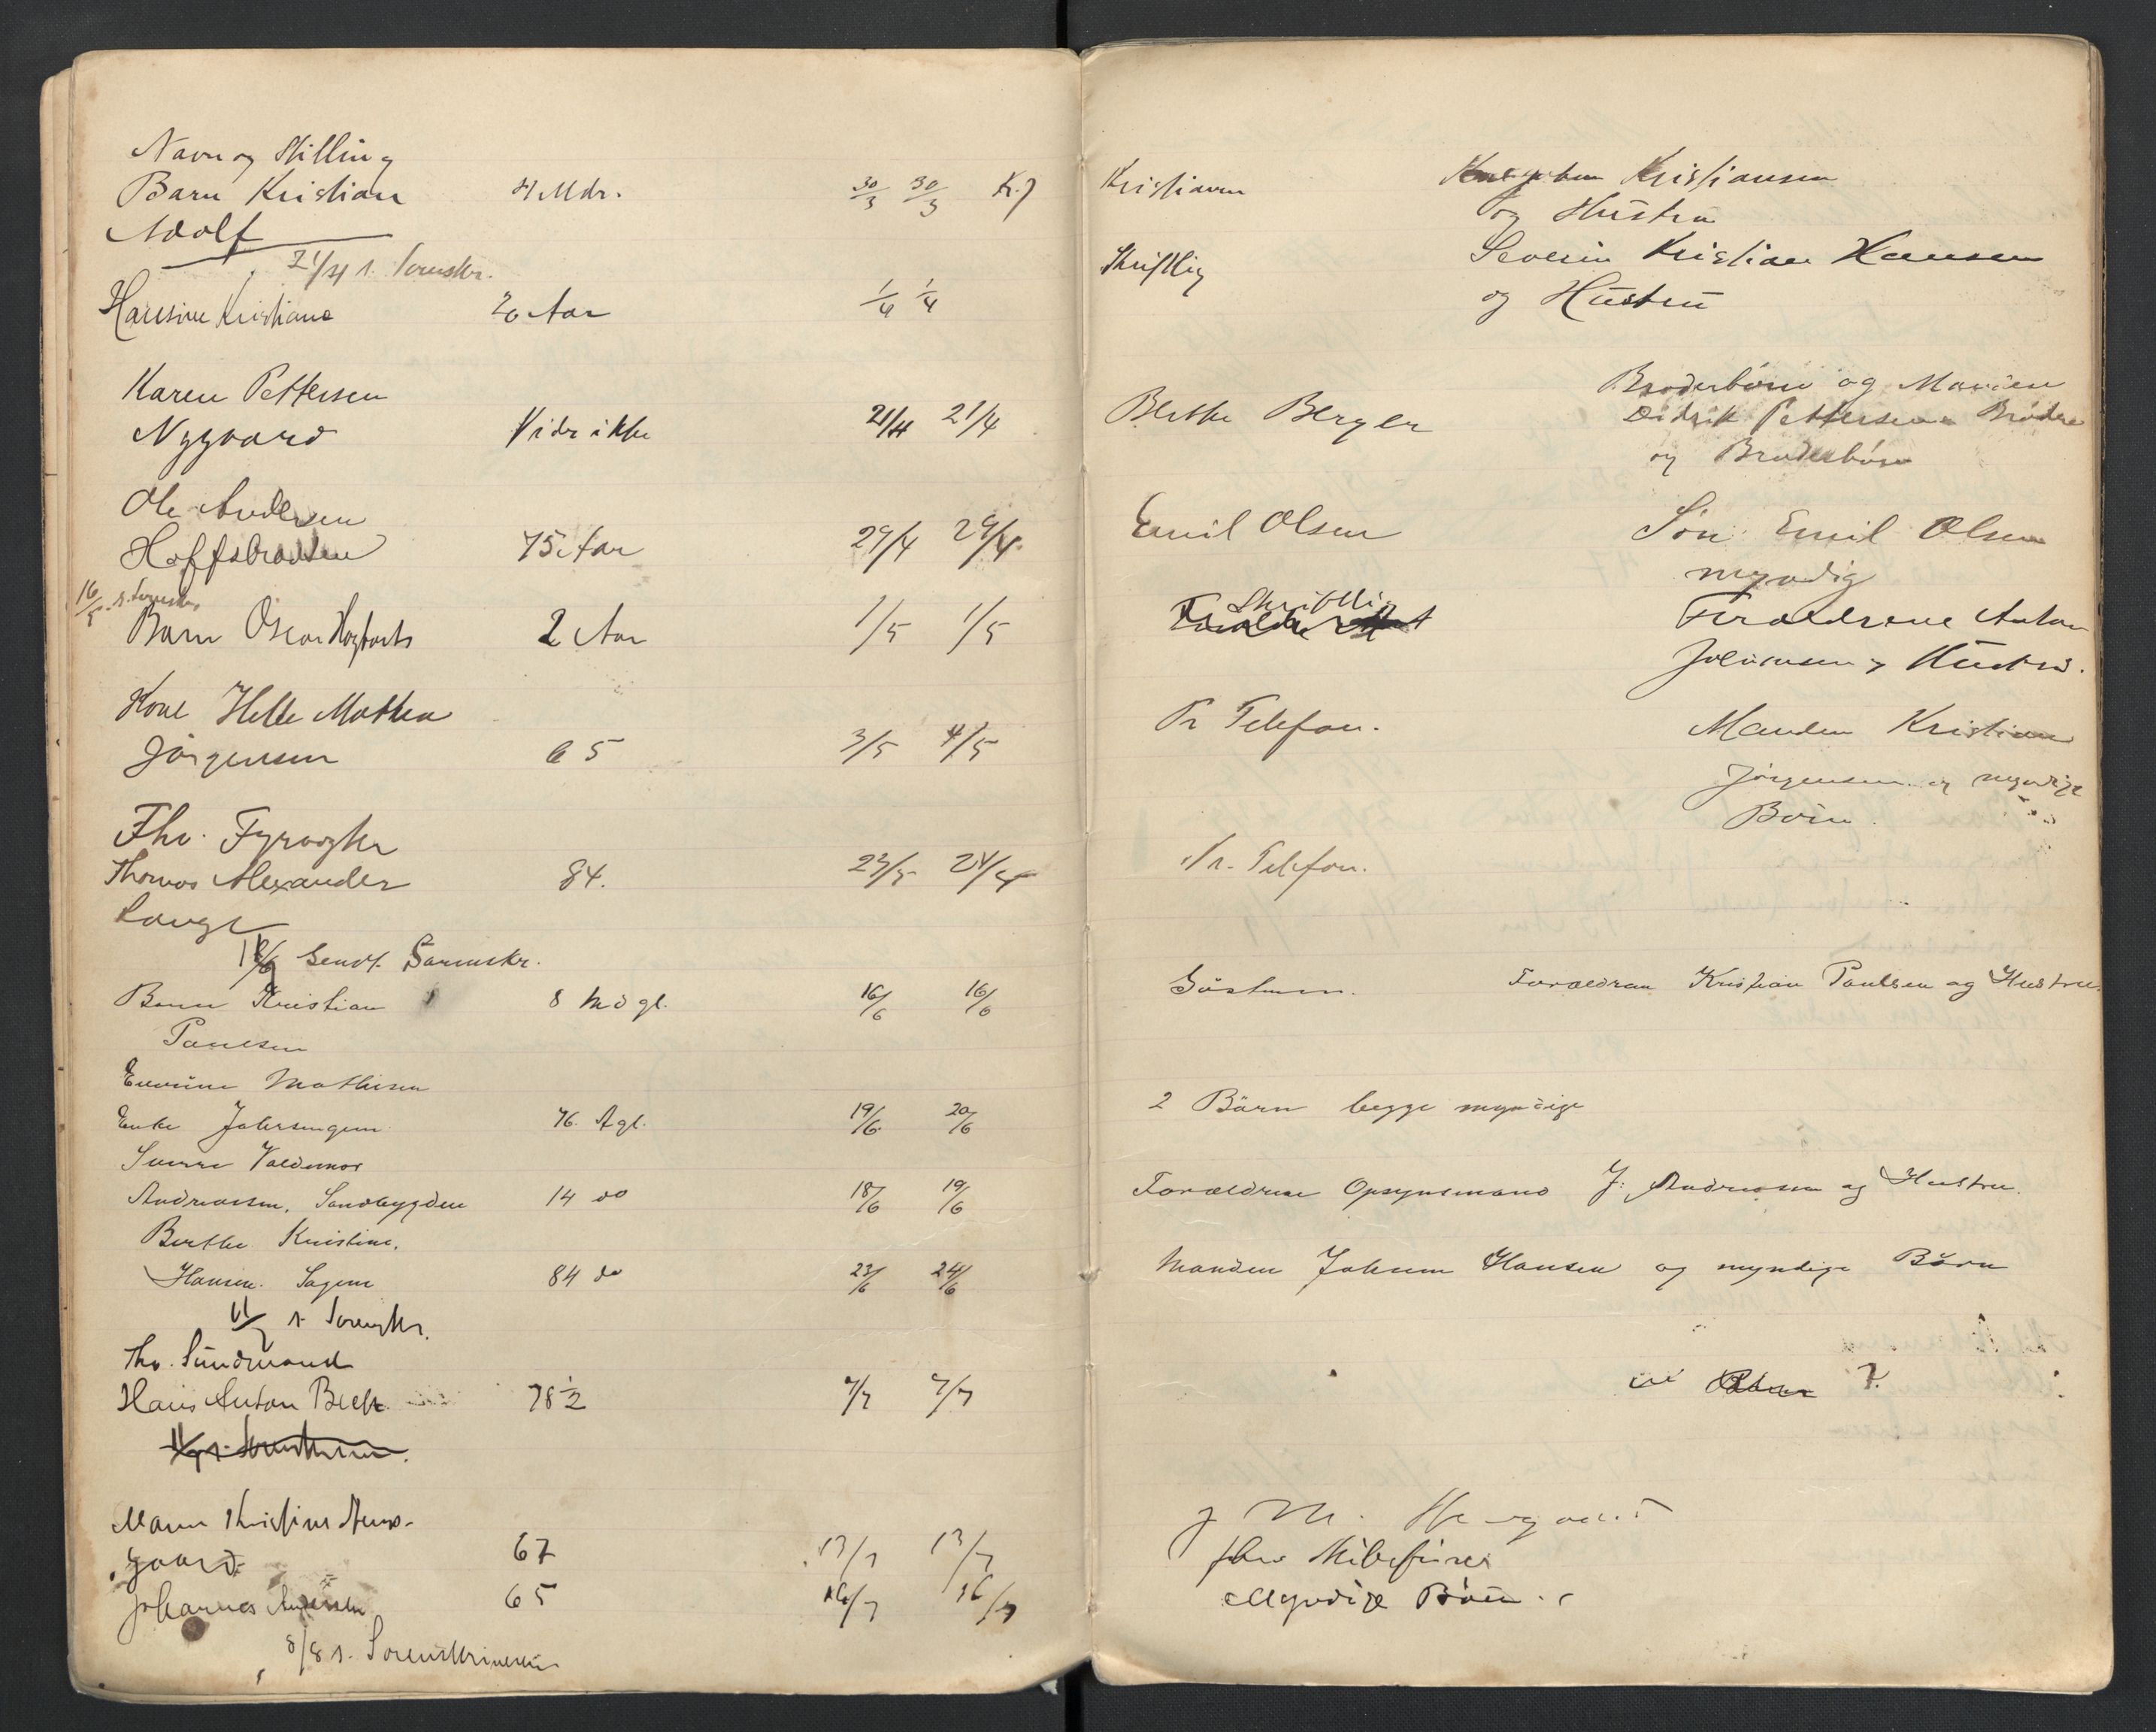 Navn og Stilling
Barn Kristian 4 Mdr. 30/3 30/3 Kr.
Adolf
21/4 s. Sorenskr.
Hansine Kristiane 20 Aar 1/4 1/4
Karen Pettersen
Nygaard Vides ikke 21/4 21/4
Ole Andersen
Hoffsbraaten 75 Aar 29/4 29/4
16/5 s. Sorenskr.
Barn Oscar 2 Aar 1/5 1/5
Kone Helle Mathea
Jörgensen 65 3/5 4/5
Fhv. Fyrvogter
Thomas Alexander 84. 23/5 24/5
Lange
Sendt Sorenskr.
Barn Kristian 8 M gl. 16/6 16/6
Paulsen
Mathisen
Enke 76. A gl. 19/6 20/6
Sverre Valdemar
Andreassen. Sandbygden 14 do 18/6 19/6
Berthe Kristine.
Hansen. 84 do 23/6 24/6
11/7 s. Sorenskr.
Fhv. Sundmand
Hans Anton Beck 78 1/2 7/7 7/7
Maren Kristine
gaard 67 13/7 13/7
Johannes 65 16/7 16/7
8/8 s. Sorenskriveren
Kristiansen
og Hustru
Skriftlig Severin Kristian Hansen
og Hustru
Broderbörn og Manden
Berthe Berger Didrik Pettersens Brödre
og Broderbörn
Emil Olsen Sön Emil Olsen
myndig
Skriftlig Foraeldrene Anton
Johansen og Hustru.
Pr Telefon. Manden Kristian
Jörgensen og myndige
Börn.
Pr. Telefon.
Foraeldren Kristian Paulsen og Hustru.
2 Börn begge myndige
Foraeldrene Opsynsmand J. Andreassen og Hustru.
Manden Hansen og myndige Börn
?
J M.
Myndige Börn.